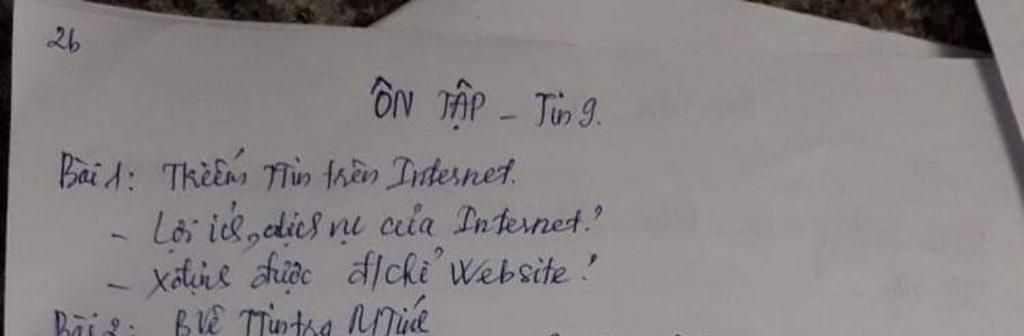 26
ÔN TẬP - Tin 9.
Bài 1: TKiếm TTin trên Internet.
- Lợi ích, dịch vụ của Internet?
- Xđịnh được đ/chỉ Website?
Bài 2: BVệ TTin